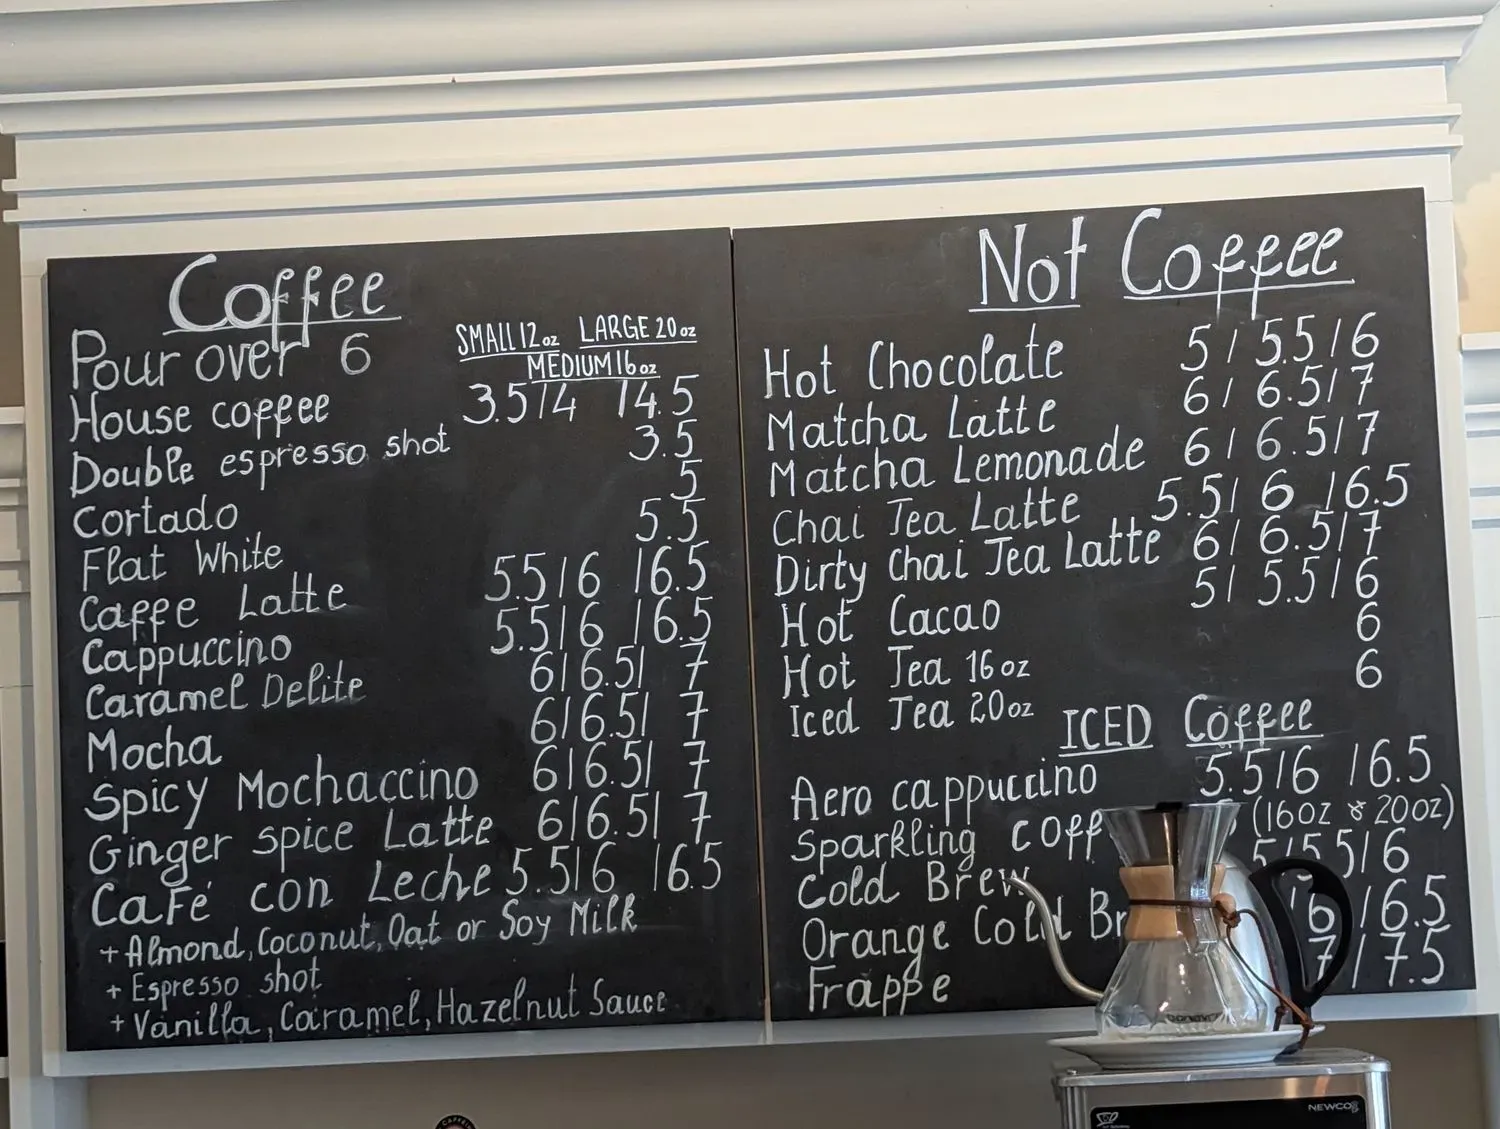 Coffee
SMALL 12oz LARGE 20oz
MEDIUM 16oz
Pour over 6
House coffee 3.5/4 /4.5
Double espresso shot 3.5
Cortado 5
Flat White 5.5
Caffe Latte 5.5/6 /6.5
Cappuccino 5.5/6 /6.5
Caramel Delite 6/6.5/ 7
Mocha 6/6.5/ 7
Spicy Mochaccino 6/6.5/ 7
Ginger spice Latte 6/6.5/ 7
Café con Leche 5.5/6 /6.5
+ Almond, Coconut, Oat or Soy Milk
+ Espresso shot
+ Vanilla, Caramel, Hazelnut Sauce
Not Coffee
Hot Chocolate 5/5.5/6
Matcha Latte 6/6.5/7
Matcha Lemonade 6/6.5/7
Chai Tea Latte 5.5/6/6.5
Dirty Chai Tea Latte 6/6.5/7
Hot Cacao 5/5.5/6
Hot Tea 16oz 6
Iced Tea 20oz 6
ICED Coffee
Aero cappuccino 5.5/6 /6.5
Sparkling coff (16oz & 20oz)
Cold Brew 5/5.5/6
Orange Cold Br /6 /6.5
Frappe 7/7.5
NEWCO